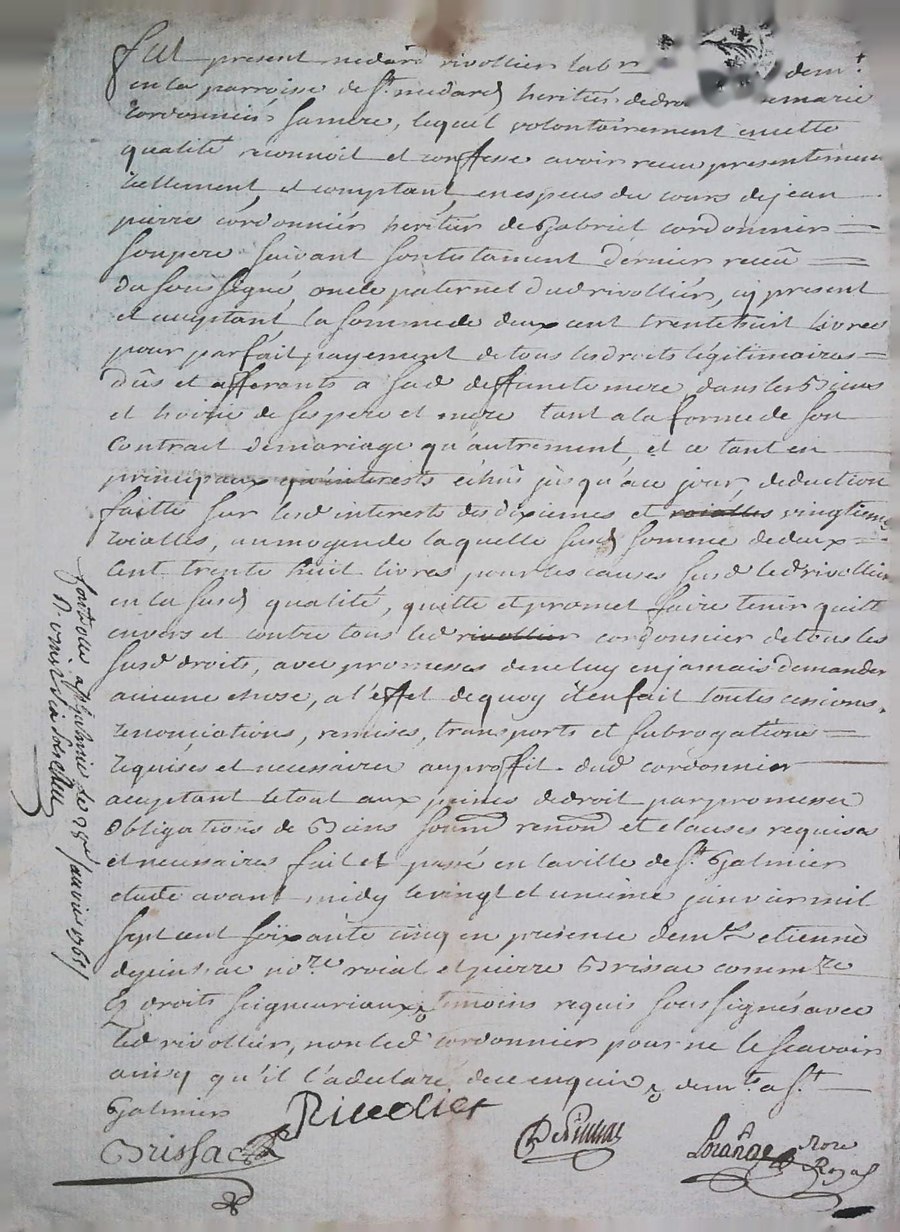 fut present medard rivollier labr demt
en la parroisse de St medard heritier de marie
cordonnier sa mere, lequel volontairement en cette
qualité reconnoit et confesse avoir receu presentement
reellement et comptant en especes du cours de jean
pierre cordonnier heritier de Gabriel cordonnier
son pere suivant son testament dernier receu
du sous signé, oncle paternel dud rivollier, cy present
et acceptant, la somme de deux cent trente huit livres
pour parfait payement de tous les droits légitimaires
dûs et afferants a sad deffuncte mere dans les Biens
et hoirie de ses pere et mere tant a la forme de son
contrait de mariage qu'autrement, et ce tant en
principaux qu'interests échûs jusqu'a ce jour, deduction
faitte sur lesd interests des dixiemes et roialles vingtiemes
roialles, au moyen de laquelle susd somme de deux
cent trente huit livres pour les causes susd led rivollier
en la susd qualité, quitte et promet faire tenir quitte
envers et contre tous led rivollier cordonnier de tous les
susd droits, avec promesses de ne luy en jamais demander
aucune chose, a l'effet de quoy il en fait toutes cessions,
renonciations, remises, transports et subrogations
requises et necessaires au proffit dud cordonnier
acceptant le tout aux peines de droit par promesses
obligations de Biens soumon renonon et clauses requises
et necessaires fait et passé en la ville de St Galmier
etude avant midy le vingt et unieme janvier mil
sept cent soixante cinq en presence de me etienne
nore roial et pierre Brissac commre
droits seigneuriaux temoins requis sous signés avec
led rivollier, non led cordonnier pour ne le scavoir
ainsy qu'il l'a declaré de ce enquis, demts a St
Galmier
Brissac
Loränge nore
Royal
Controllé a St Galmier le 28e janvier 1765